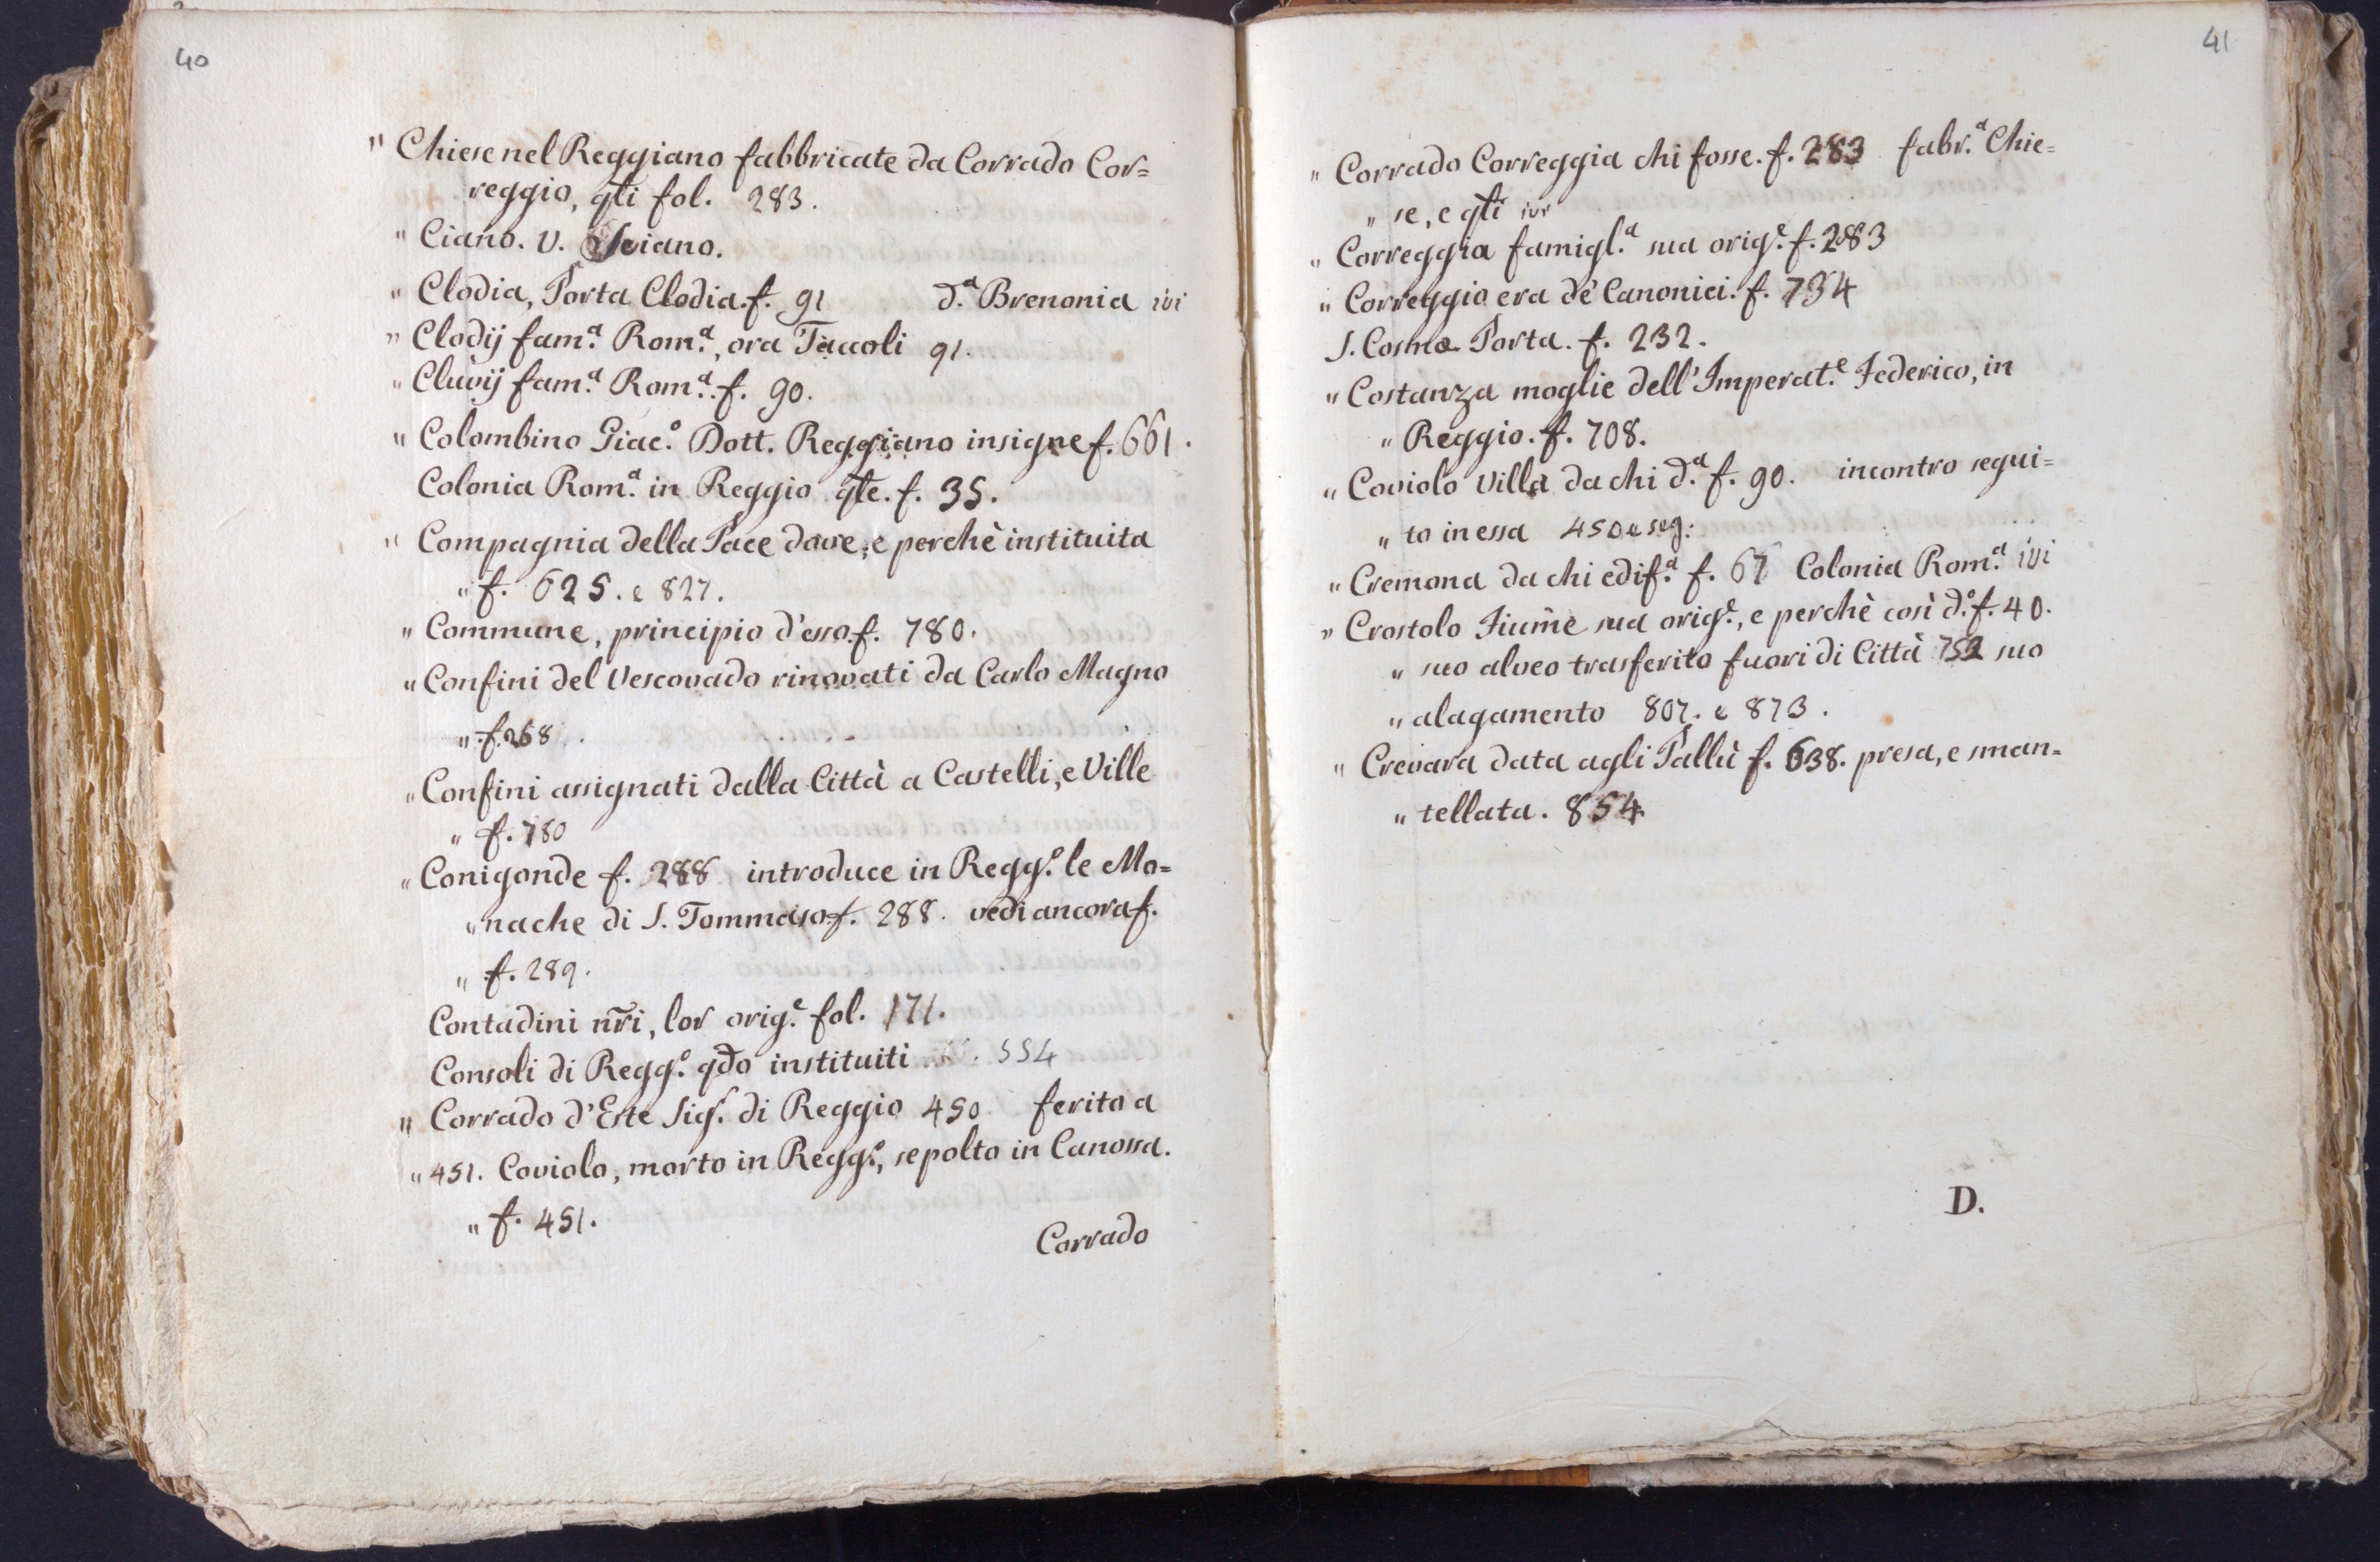 40
" Chiese nel Reggiano fabbricate da Corrado Cor=
reggio, qti fol. 283.
" Ciano. V.
" Clodia, Porta Clodia. f. 91 d.ª Brenonia ivi
" Clodij fam.ª Rom.ª, ora Taccoli 91.
" Cluvij fam.ª Rom.ª f. 90.
" Colombino Giac.º Dott. Reggiano insigne f. 661.
Colonia Rom.ª in Reggio qte. f. 35.
" Compagnia della Pace dove, e perchè instituita
" f. 625. e 827.
" Commune, principio d'esso. f. 780.
" Confini del Vescovado rinovati da Carlo Magno
" f. 268.
" Confini assignati dalla Città a Castelli, e Ville
" f. 780
" Conigonde f. 288 introduce in Regg.º le Mo=
" nache di S. Tommaso f. 288. vedi ancora f.
" f. 289.
Contadini nr̃i, lor orig.e fol. 171.
Consoli di Regg.º qdo instituiti 554
" Corrado d'Este Sig.r di Reggio 450 ferito a
" 451. Coviolo, morto in Regg.º, sepolto in Canossa.
" f. 451.
Corrado
41
" Corrado Correggia chi fosse. f. 283 fabr.ª Chie=
" se, e qti ivi
" Correggia famigl.ª sua orig.e f. 283
" Correggio era de' Canonici. f. 734
S. Cosmo Porta. f. 232.
" Costanza moglie dell'Imperat.e Federico, in
" Reggio. f. 708.
" Coviolo Villa da chi d.ª f. 90. incontro segui=
" to in essa 450 e seg:
" Cremona da chi edif.ª f. 67 Colonia Rom.ª ivi
" Crostolo Fiume sua orig.e, e perchè così d.º f. 40.
" suo alveo trasferito fuori di Città 752 suo
" alagamento 807. e 873.
" Crevara data agli Pallù f. 638. presa, e sman=
" tellata. 854
D.